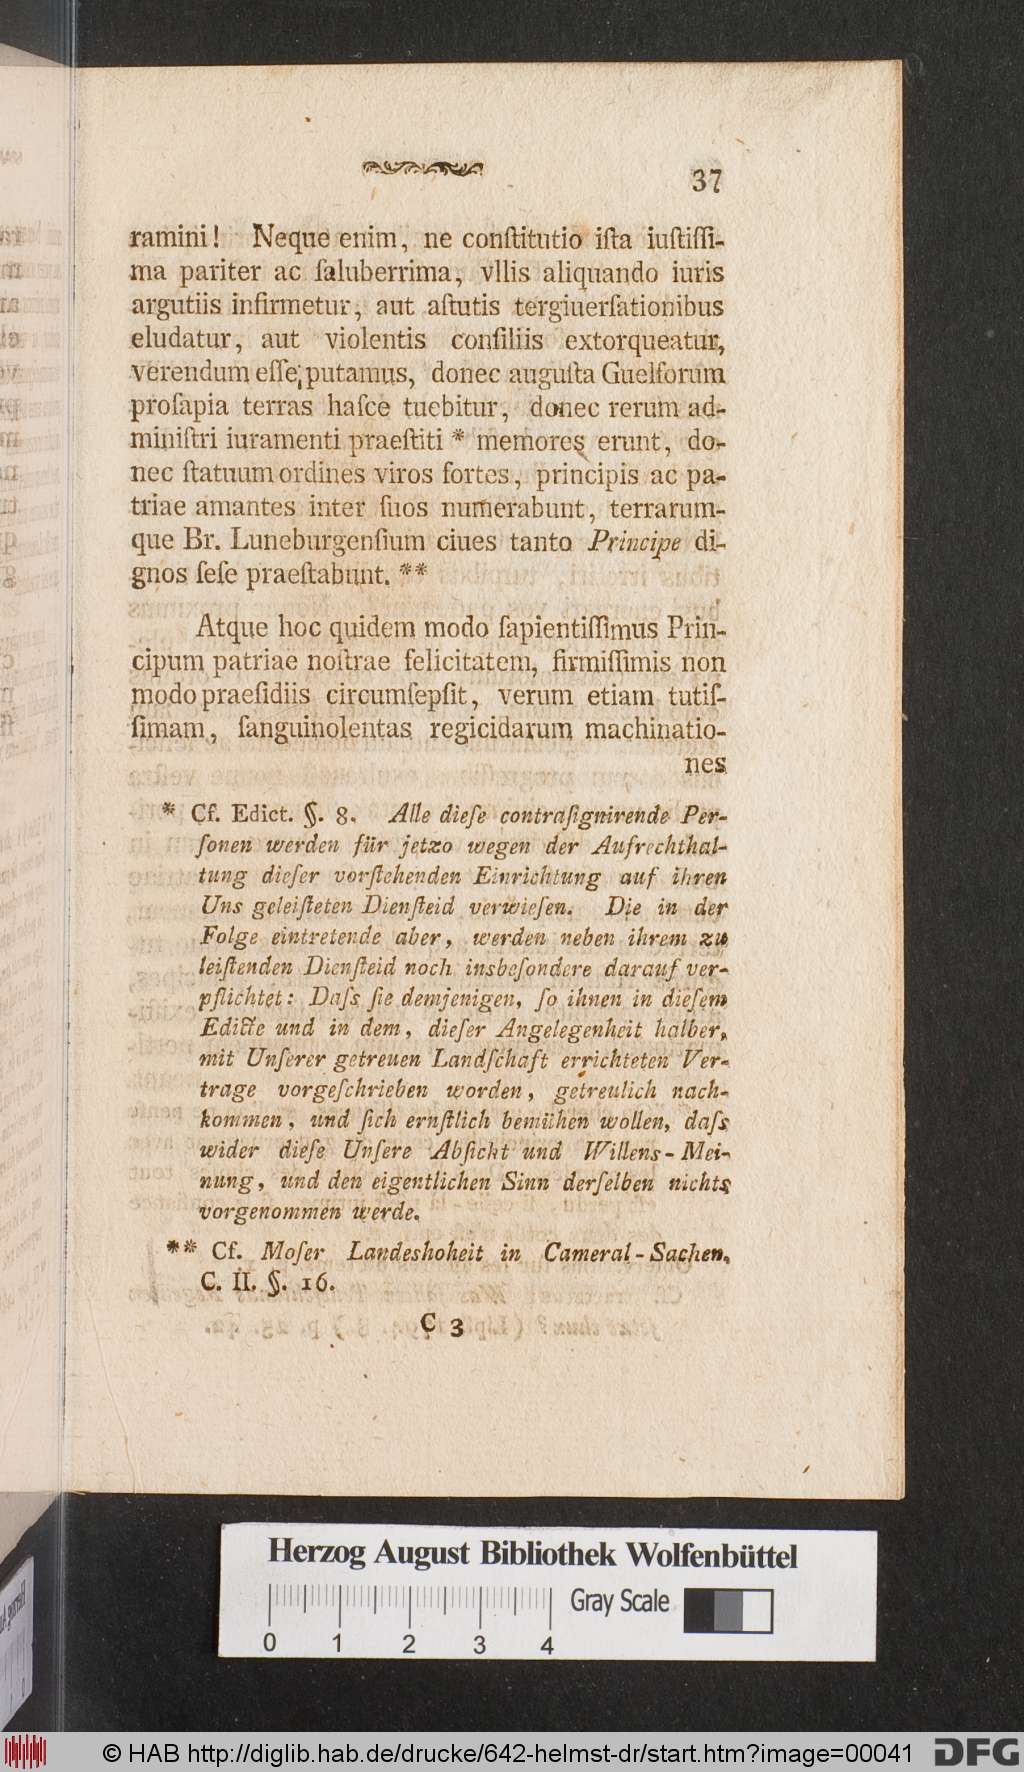 37
ramini! Neque enim, ne conſtitutio iſta iuſtiſſi-
ma pariter ac ſaluberrima, vllis aliquando iuris
argutiis infirmetur, aut aſtutis tergiuerſationibus
eludatur, aut violentis conſiliis extorqueatur,
verendum eſſe putamus, donec auguſta Guelforum
proſapia terras haſce tuebitur, donec rerum ad-
miniſtri iuramenti praeſtiti * memores erunt, do-
nec ſtatuum ordines viros fortes, principis ac pa-
triae amantes inter ſuos numerabunt, terrarum-
que Br. Luneburgenſium ciues tanto Principe di-
gnos ſeſe praeſtabunt. **
Atque hoc quidem modo ſapientiſſimus Prin-
cipum patriae noſtrae felicitatem, firmiſſimis non
modo praeſidiis circumſepſit, verum etiam tutiſ-
ſimam, ſanguinolentas regicidarum machinatio-
nes
* Cf. Edict. §. 8. Alle dieſe contraſignirende Per-
ſonen werden für jetzo wegen der Aufrechthal-
tung dieſer vorſtehenden Einrichtung auf ihren
Uns geleiſteten Dienſteid verwieſen. Die in der
Folge eintretende aber, werden neben ihrem zu
leiſtenden Dienſteid noch insbeſondere darauf ver-
pflichtet: Daſs ſie demjenigen, ſo ihnen in dieſem
Edicte und in dem, dieſer Angelegenheit halber,
mit Unſerer getreuen Landſchaft errichteten Ver-
trage vorgeſchrieben worden, getreulich nach-
kommen, und ſich ernſtlich bemühen wollen, daſs
wider dieſe Unſere Abſicht und Willens-Mei-
nung, und den eigentlichen Sinn derſelben nichts
vorgenommen werde.
** Cf. Moſer Landeshoheit in Cameral-Sachen.
C. II. §. 16.
C 3
Herzog August Bibliothek Wolfenbüttel
Gray Scale
0 1 2 3 4
© HAB http://diglib.hab.de/drucke/642-helmst-dr/start.htm?image=00041 DFG